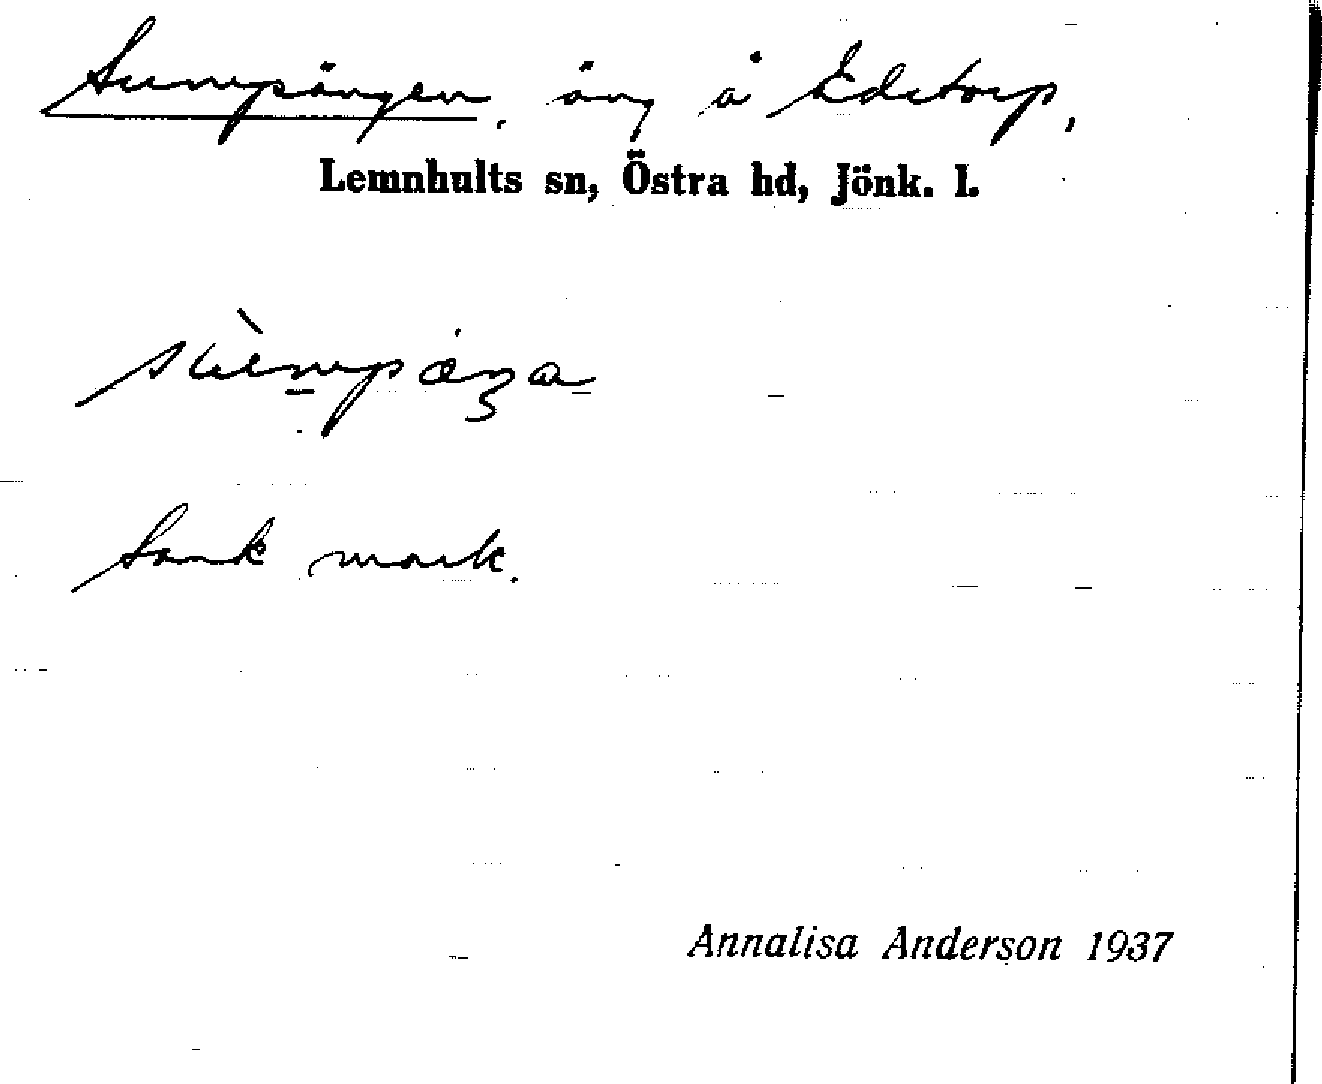 Sumpängen, äng å Edstorp,
Lemnhults sn, Östra hd, Jönk. l.
Sank mark.
Annalisa Anderson 1937